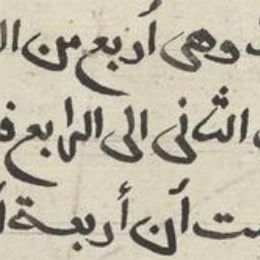 وهى أربع من
الثانى الى الرابع
أن أربعة